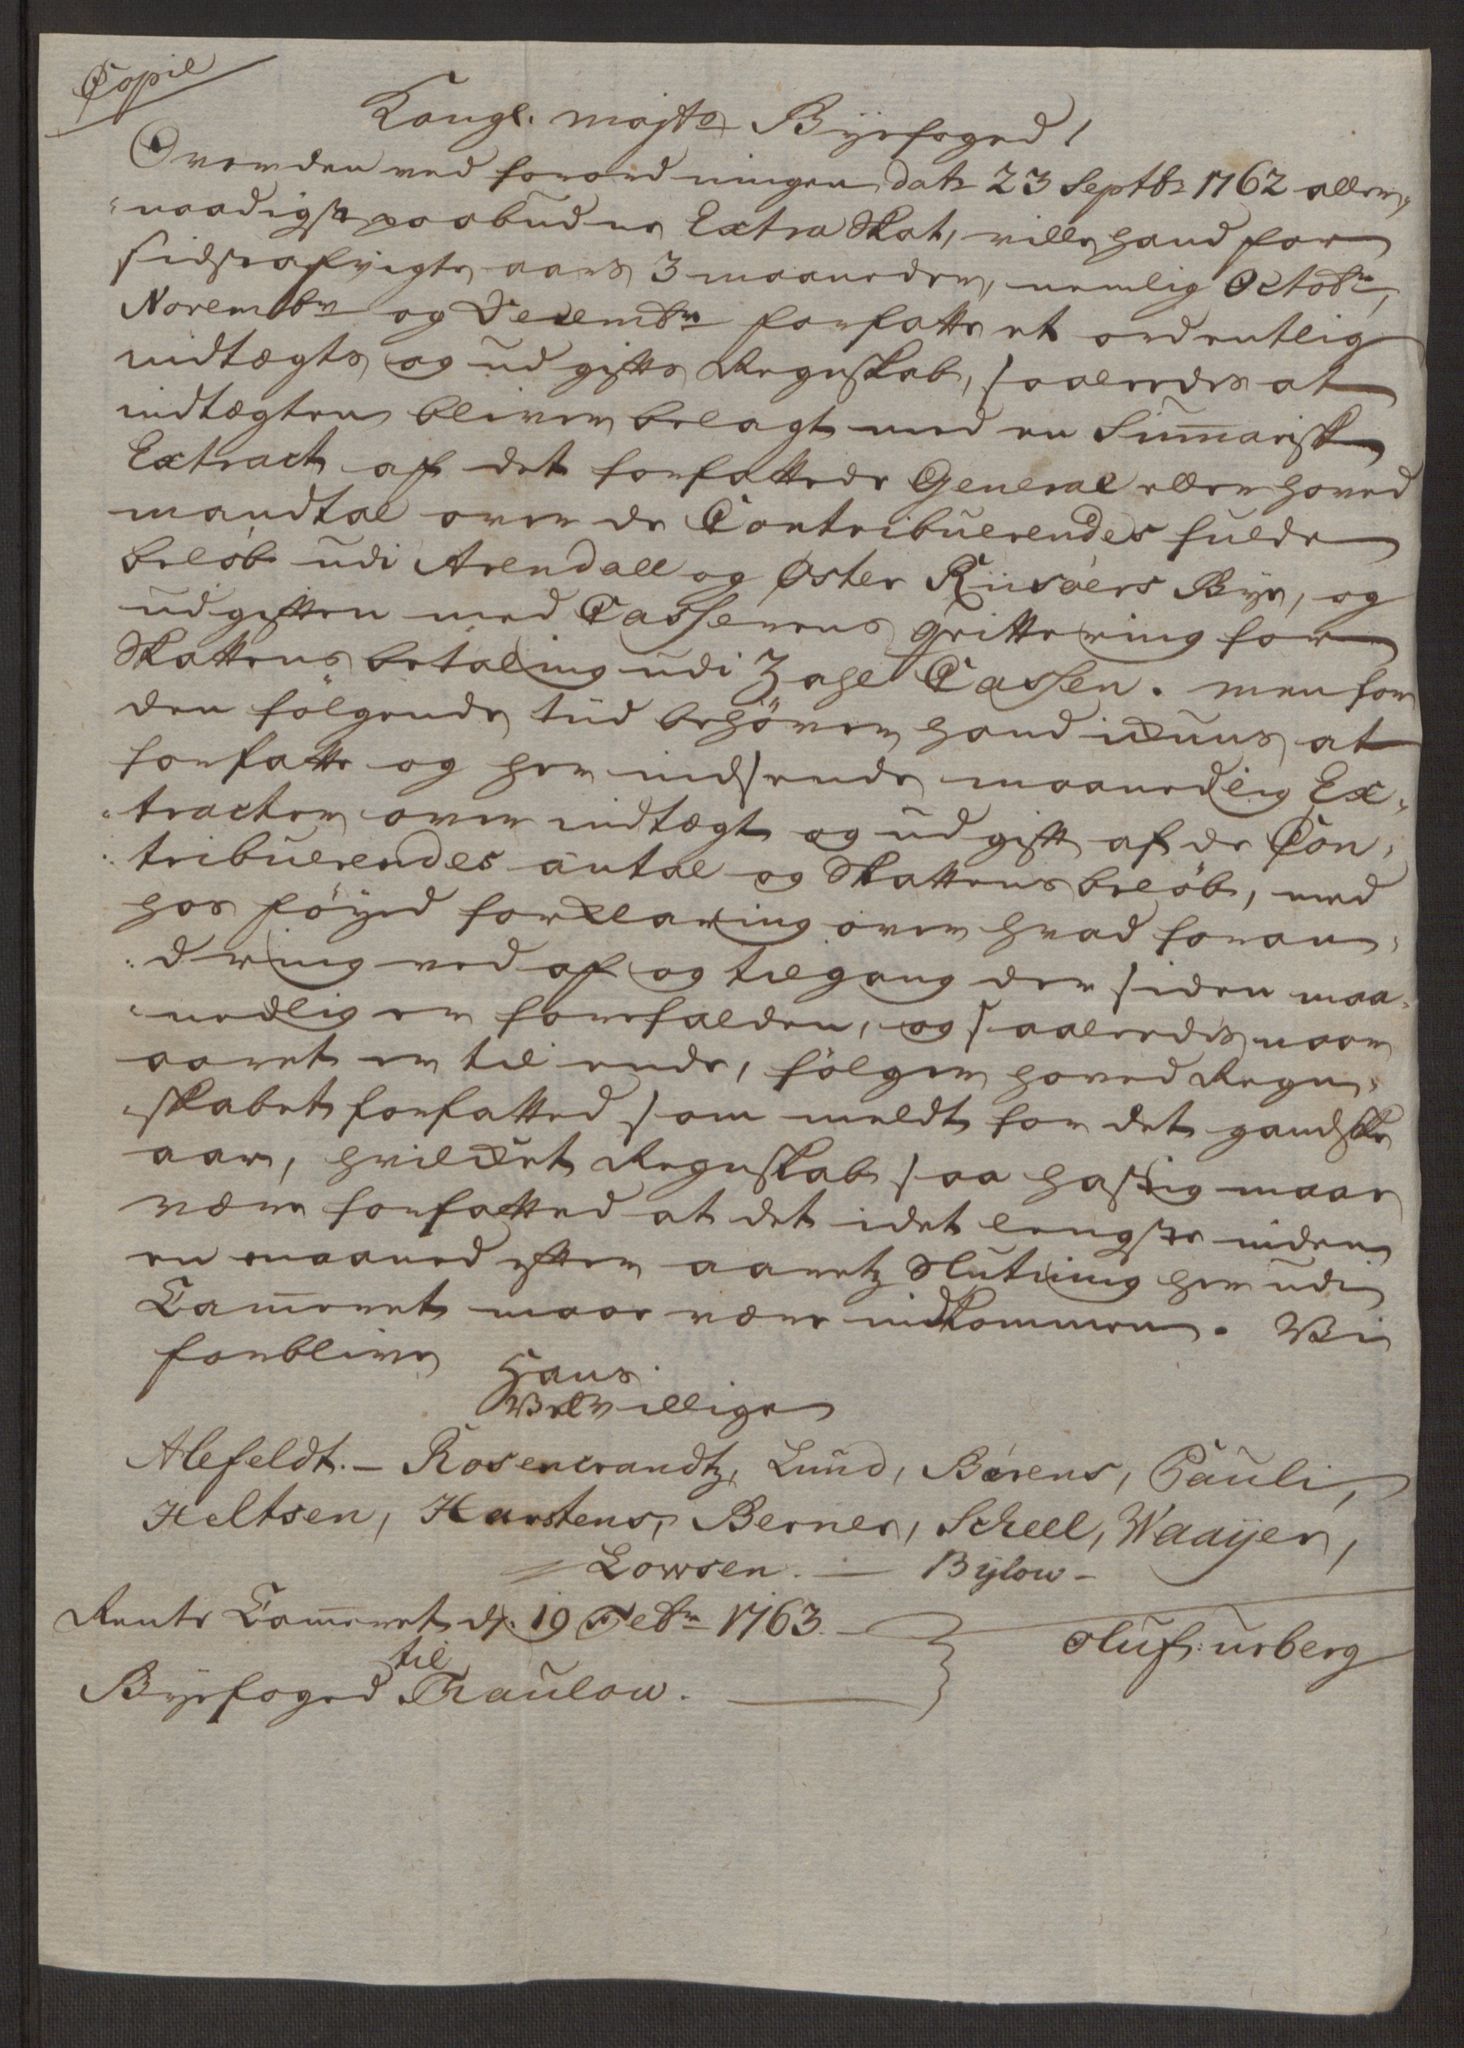 Copie
Kongl. mayts Byefoged!
Over den ved forordningen dat: 23 Septbr 1762 aller„
„naadigste paabudne Extra Skat, ville hand for
sidstafvigte aars 3 maaneder, nemlig Octobr,
Novembr og Decembr forfatte et ordentlig
indtægts og udgifts Regnskab, saaleedes at
indtægten bliver belagt med en Sum̅arisk
Extract af det forfattede General eller hoved
mandtal over de Contribuerendes fulde
beløb udi Arendall og Øster Riisøers Bye, og
udgiften med Casserens qvittering for
Skattens betaling udi Zahl Cassen. men for
den følgende tiid behøver hand ikuns at
forfatte og her indsende maanedlig Ex„
„tracter over indtægt og udgift af de Con„
„tribuerendes antal og Skattens beløb, med
hos føyed forklaring over hvad foran„
„dring ved af og tilgang der siden maa„
„nedlig er forefalden, og saaleedes naar
aaret er til ende, følger hoved Regn„
„skabet forfatted som meldt for det gandske
aar, hvilket Regnskab saa hastig maae
være forfatted at det i det lengste inden
en maaned efter aaretz Slutning her udi
Cam̅eret maae være indkommen. Vi
forblive
Hans
Velvillige
Alefeldt. – Rosencrandtz, Lund, Bærens, Pauli,
Heltsen, Karstens, Berner, Scheel, Waayer,
= Lowsen. — Bylow –
Rente Cam̅eret d. 19 Febr 1763.
til
Byefoged Thaulow.
Oluf: urberg